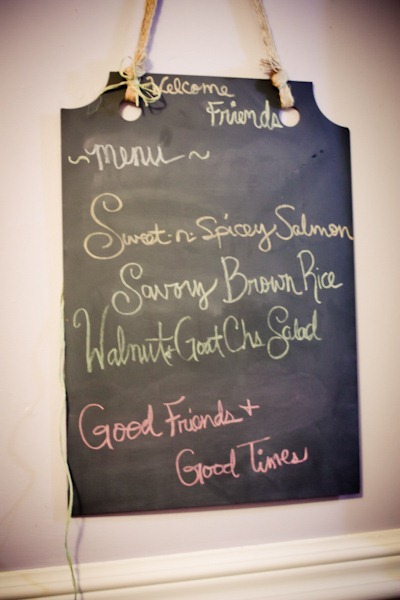 Welcome
Friends
~menu~
Sweet-n-Spicey Salmon
Savory Brown Rice
Walnut & Goat Chs Salad
Good Friends +
Good Times